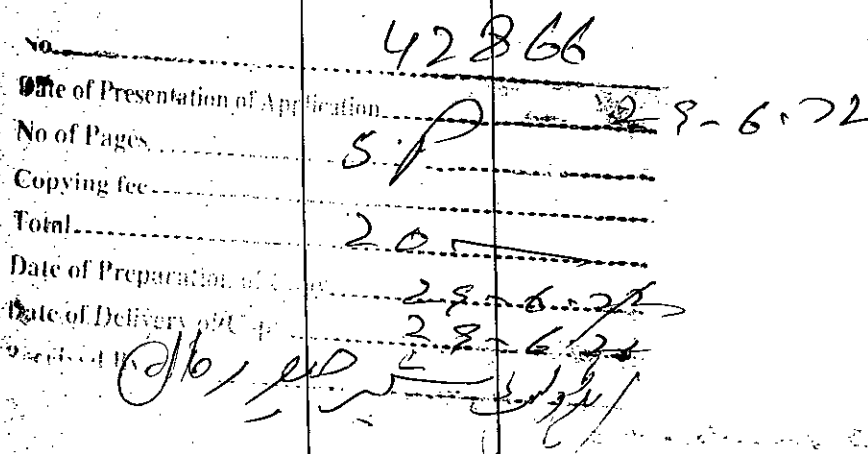 No. 42866
Date of Presentation of Application 29-6-22
No of Pages 5 P
Copying fee
Total 20
Date of Preparation of Copy 29-6-22
Date of Delivery of Copy 29-6-22
Received By